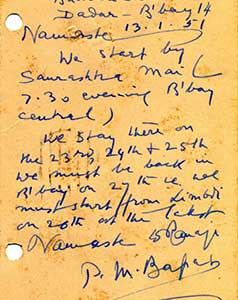 Dadar - B'bay 14
Namaste 13.1.51
We start by
Saurashtra Mail
(7.30 evening B'bay
central)
We stay there on
the 23rd, 24th & 25th
we must be back in
B'bay on 27th i.e. we
must start from Limbdi
on 26th at the latest
Namaste
P. M. Bapat